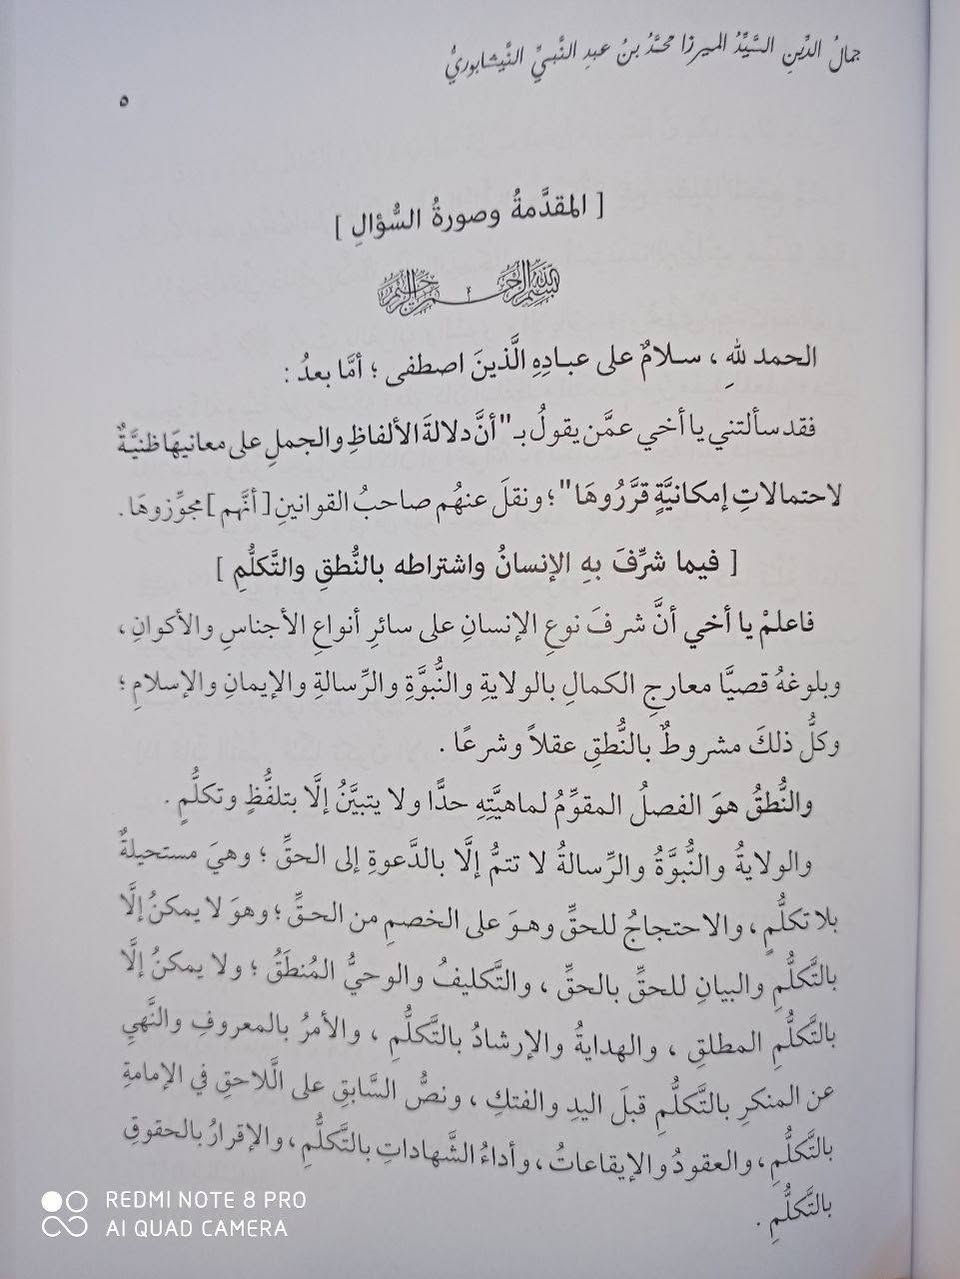 جمالُ الدِّينِ السَّيِّدُ الميرزا محمَّدُ بنُ عبدِ النَّبيِّ النَّيشابوريُّ
٥
[ المقدَّمةُ وصورةُ السُّؤالِ ]
بسم الله الرحمن الرحيم
الحمد للهِ ، سلامٌ على عبادِهِ الَّذينَ اصطفى ؛ أمَّا بعدُ :
فقد سألتني يا أخي عمَّن يقولُ بـ "أنَّ دلالةَ الألفاظِ والجملِ على معانيهَا ظنيَّةٌ
لاحتمالاتٍ إمكانيَّةٍ قرَّرُوهَا" ؛ ونقلَ عنهُم صاحبُ القوانينِ [ أنَّهم ] مجوِّزوهَا .
[ فيما شرِّفَ بهِ الإنسانُ واشتراطه بالنُّطقِ والتَّكلُّمِ ]
فاعلمْ يا أخي أنَّ شرفَ نوعِ الإنسانِ على سائرِ أنواعِ الأجناسِ والأكوانِ ،
وبلوغهُ قصيَّا معارجِ الكمالِ بالولايةِ والنُّبوَّةِ والرِّسالةِ والإيمانِ والإسلامِ ؛
وكلُّ ذلكَ مشروطٌ بالنُّطقِ عقلاً وشرعًا .
والنُّطقُ هوَ الفصلُ المقوِّمُ لماهيَّتِهِ حدًّا ولا يتبيَّنُ إلَّا بتلفُّظٍ وتكلُّمٍ .
والولايةُ والنُّبوَّةُ والرِّسالةُ لا تتمُّ إلَّا بالدَّعوةِ إلى الحقِّ ؛ وهيَ مستحيلةٌ
بلا تكلُّمٍ ، والاحتجاجُ للحقِّ وهوَ على الخصمِ من الحقِّ ؛ وهوَ لا يمكنُ إلَّا
بالتَّكلُّمِ والبيانِ للحقِّ بالحقِّ ، والتَّكليفُ والوحيُّ المُنطَقُ ؛ ولا يمكنُ إلَّا
بالتَّكلُّمِ المطلقِ ، والهدايةُ والإرشادُ بالتَّكلُّمِ ، والأمرُ بالمعروفِ والنَّهيِ
عن المنكرِ بالتَّكلُّمِ قبلَ اليدِ والفتكِ ، ونصُّ السَّابقِ على الَّلاحقِ في الإمامةِ
بالتَّكلُّمِ ، والعقودُ والإيقاعاتُ ، وأداءُ الشَّهاداتِ بالتَّكلُّمِ ، والإقرارُ بالحقوقِ
بالتَّكلُّمِ .
REDMI NOTE 8 PRO
AI QUAD CAMERA